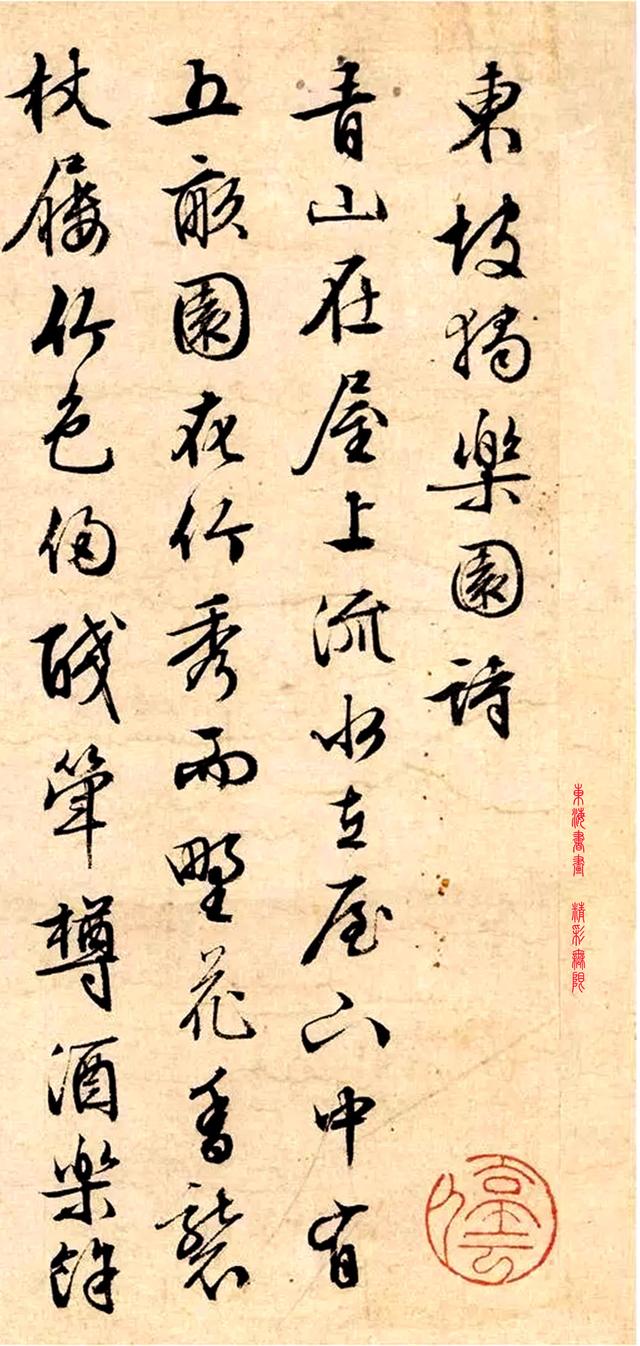 東坡獨樂園詩
青山在屋上流水在屋下中有
五畝園花竹秀而野花香襲
杖屨竹色侵醆斝樽酒樂餘
東海書畫 精彩無限